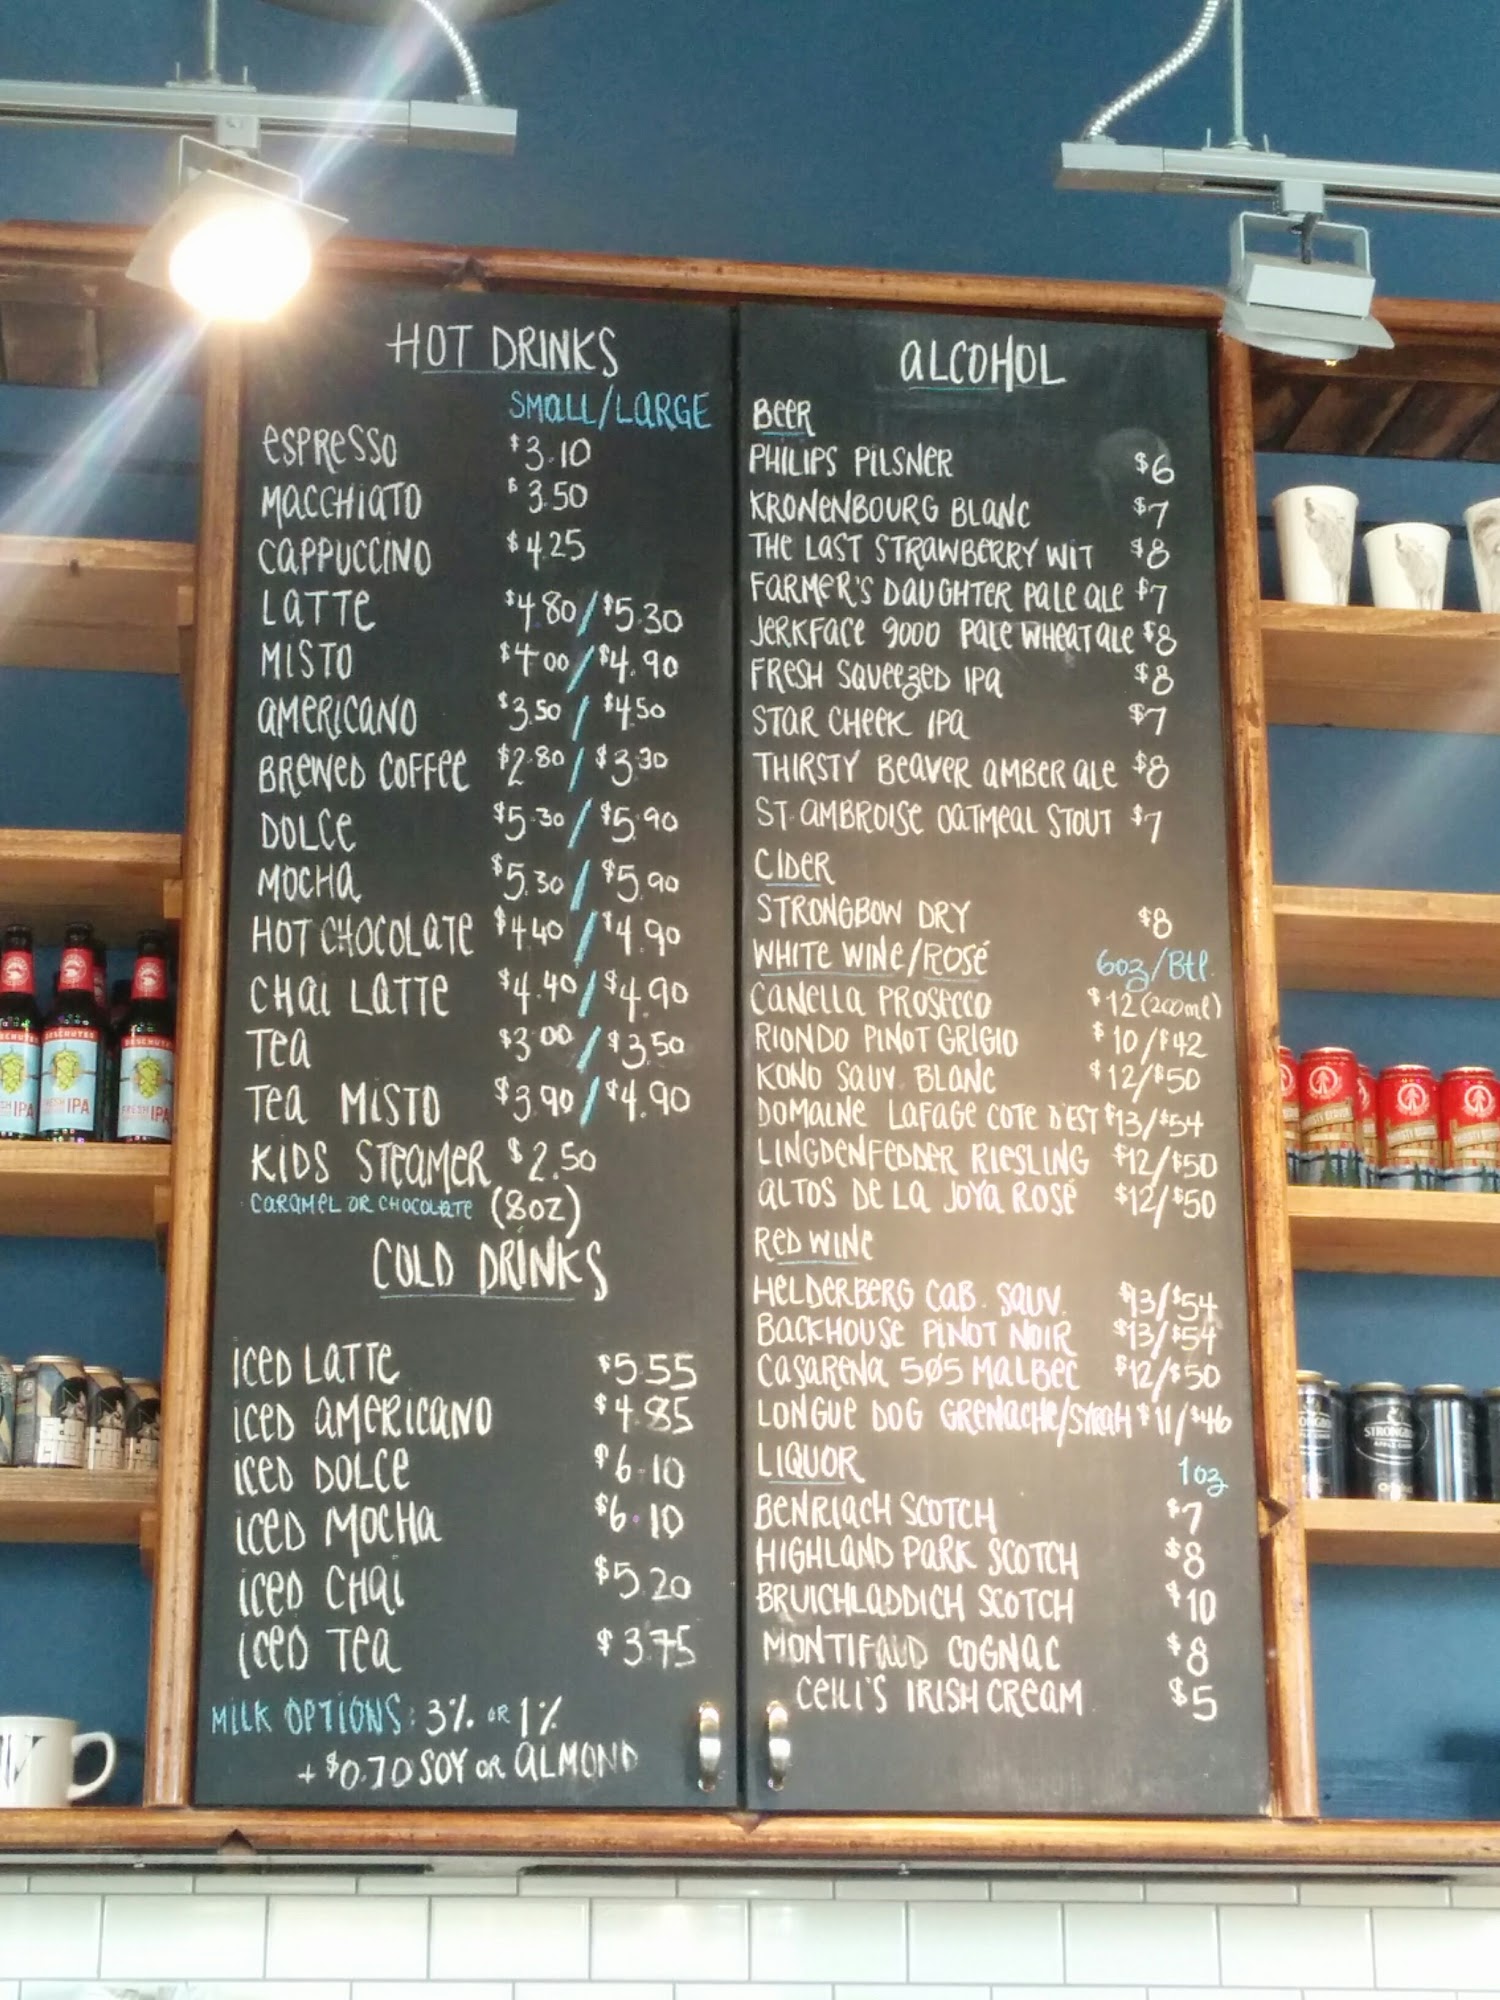 HOT DRINKS
SMALL/LARGE
ESPRESSO $3.10
MACCHIATO $3.50
CAPPUCCINO $4.25
LATTE $4.80/$5.30
MISTO $4.00/$4.90
AMERICANO $3.50/$4.50
BREWED COFFEE $2.80/$3.30
DOLCE $5.30/$5.90
MOCHA $5.30/$5.90
HOT CHOCOLATE $4.40/$4.90
CHAI LATTE $4.40/$4.90
TEA $3.00/$3.50
TEA MISTO $3.90/$4.90
KIDS STEAMER $2.50
CARAMEL OR CHOCOLATE (8OZ)
COLD DRINKS
ICED LATTE $5.55
ICED AMERICANO $4.85
ICED DOLCE $6.10
ICED MOCHA $6.10
ICED CHAI $5.20
ICED TEA $3.75
MILK OPTIONS: 3% OR 1%
+ $0.70 SOY OR ALMOND
ALCOHOL
BEER
PHILIPS PILSNER $6
KRONENBOURG BLANC $7
THE LAST STRAWBERRY WIT $8
FARMER'S DAUGHTER PALE ALE $7
JERKFACE 9000 PALE WHEAT ALE $8
FRESH SQUEEZED IPA $8
STAR CHEEK IPA $7
THIRSTY BEAVER AMBER ALE $8
ST. AMBROISE OATMEAL STOUT $7
CIDER
STRONGBOW DRY $8
WHITE WINE/ROSÉ 6oz/Btl.
CANELLA PROSECCO $12 (200ml)
RIONDO PINOT GRIGIO $10/$42
KONO SAUV. BLANC $12/$50
DOMAINE LAFAGE COTE D'EST $13/$54
LINGDENFEDDER RIESLING $12/$50
ALTOS DE LA JOYA ROSÉ $12/$50
RED WINE
HELDERBERG CAB. SAUV. $13/$54
BACKHOUSE PINOT NOIR $13/$54
CASARENA 505 MALBEC $12/$50
LONGUE DOG GRENACHE/SYRAH $11/$46
LIQUOR 1oz
BENRIACH SCOTCH $7
HIGHLAND PARK SCOTCH $8
BRUICHLADDICH SCOTCH $10
MONTIFAUD COGNAC $8
CEILI'S IRISH CREAM $5
DESCHUTES
FRESH IPA
STRONGBOW